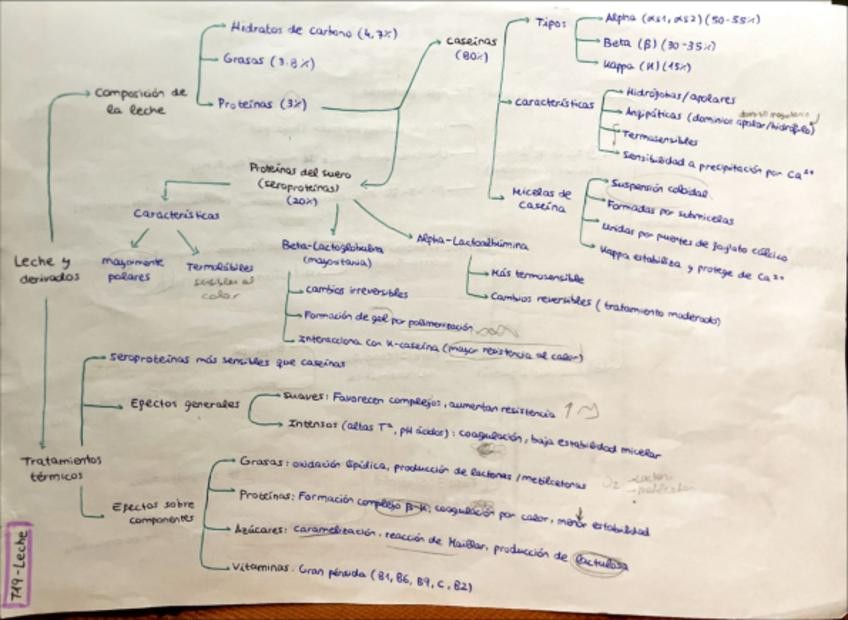 Leche y
derivados
Composición de
la leche
Hidratos de carbono (4,7%)
Grasas (3.8%)
Proteínas (3%)
caseínas
(80%)
Tipos
Alpha (αs1, αs2) (50-55%)
Beta (β) (30-35%)
Kappa (K) (15%)
características
Hidrófobas/apolares
Anfipáticas (dominios apolar/hidrófilo)
Termosensibles
Sensibilidad a precipitación por Ca²⁺
Micelas de
caseína
Suspensión coloidal
Formadas por submicelas
Unidas por puentes de fosfato cálcico
Kappa estabiliza y protege de Ca²⁺
Proteínas del suero
(seroproteínas)
(20%)
Características
mayormente
polares
Termolábiles
sensibles al
calor
Beta-Lactoglobulina
(mayoritaria)
cambios irreversibles
Formación de gel por polimerización
Interacciona con K-caseína (mayor resistencia al calor)
Alpha-Lactoalbúmina
Más termosensible
Cambios reversibles (tratamiento moderado)
Tratamientos
térmicos
Seroproteínas más sensibles que caseínas
Efectos generales
suaves: Favorecen complejos, aumentan resistencia
Intensos (altas Tª, pH ácidos): coagulación, baja estabilidad micelar
Efectos sobre
componentes
Grasas: oxidación lipídica, producción de lactonas/metilcetonas
O₂
Proteínas: Formación complejo β-K, coagulación por calor, menor estabilidad
Azúcares: Caramelización, reacción de Maillar, producción de lactulosa
Vitaminas: Gran pérdida (B1, B6, B9, C, B2)
T19-Leche